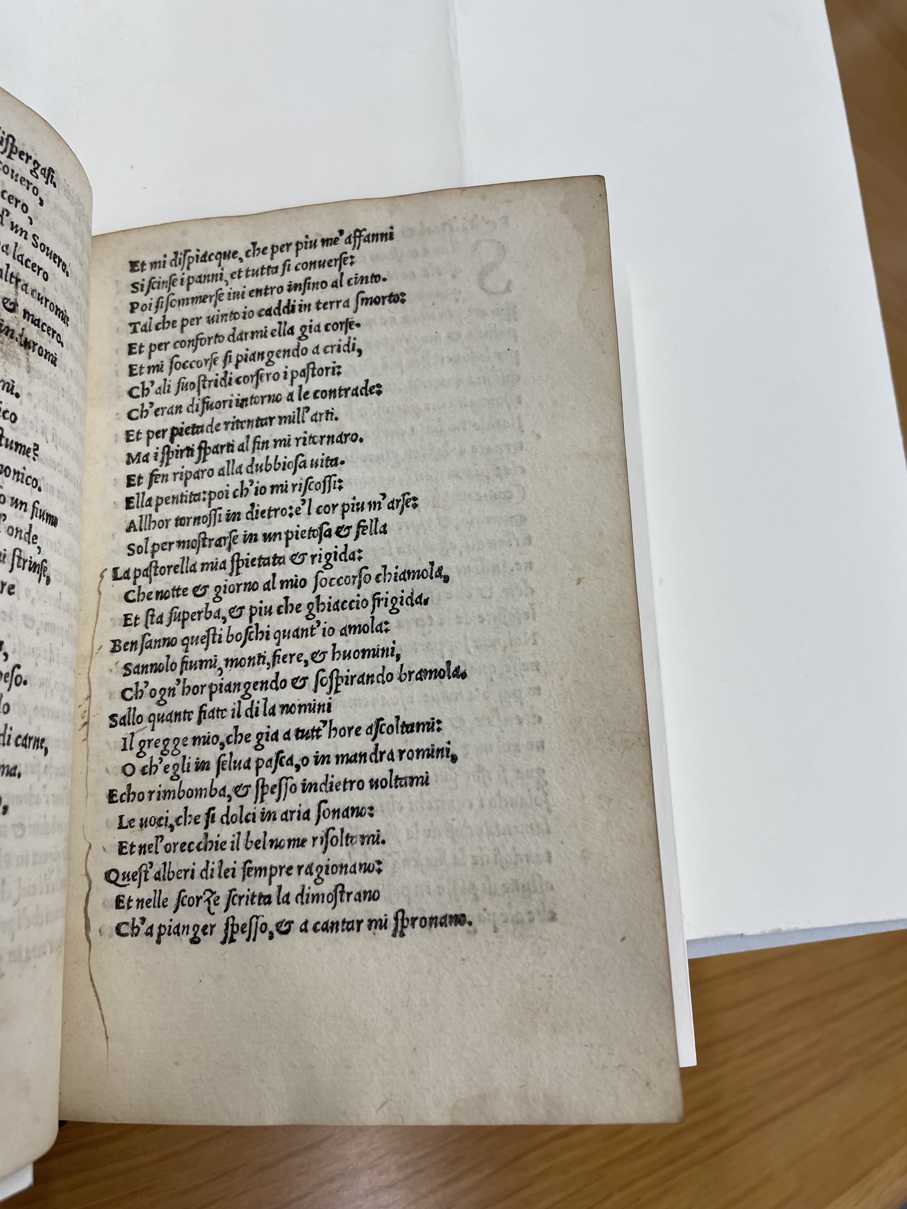 ispergasi.
ouero,
cero,
d'un Souero.
a lacero
altra curomi:
& macero.
induromi
mi.
ico
tume?
onico.
o un fiume
l'onde,
i strinse,
re
,
eso.
lo
di carne,
ma.
,
Et mi dispiacque, che per piu me' affanni
Si scinse i panni, et tutta si conuerse:
Poi si sommerse ini entro insino al cinto.
Tal che per uinto io caddi in terra smorto:
Et per conforto darmi ella gia corse.
Et mi soccorse si piangendo a cridi,
Ch'ali suo stridi corsero i pastori:
Ch'eran di fuori intorno a le contrade:
Et per pietade ritentar mill'arti.
Ma i spirti sparti al fin mi ritornaro.
Et fen riparo alla dubbiosa uita.
Ella pentita: poi ch'io mi riscossi:
Allhor tornossi in dietro: e'l cor piu m'arse:
Sol per mostrarse in un pietosa & fella
La pastorella mia spietata & rigida:
Che notte & giorno al mio soccorso chiamola,
Et sta superba, & piu che ghiaccio frigida.
Ben sanno questi boschi quant'io amola:
Sannolo fiumi, monti, fiere, & huomini,
Ch'ogn'hor piangendo & sospirando bramola.
Sallo quante fiate il di la nomini
Il gregge mio, che gia a tutt'hore ascoltami:
O ch'egli in selua pasca, o in mandra romini,
Echo rimbomba, & spesso indietro uoltami
Le uoci, che si dolci in aria sonano:
Et nel'orecchie il bel nome risoltomi.
Quest'alberi di lei sempre ragionano:
Et nelle scorze scritta la dimostrano
Ch'a pianger spesso, & a cantar mi spronano.